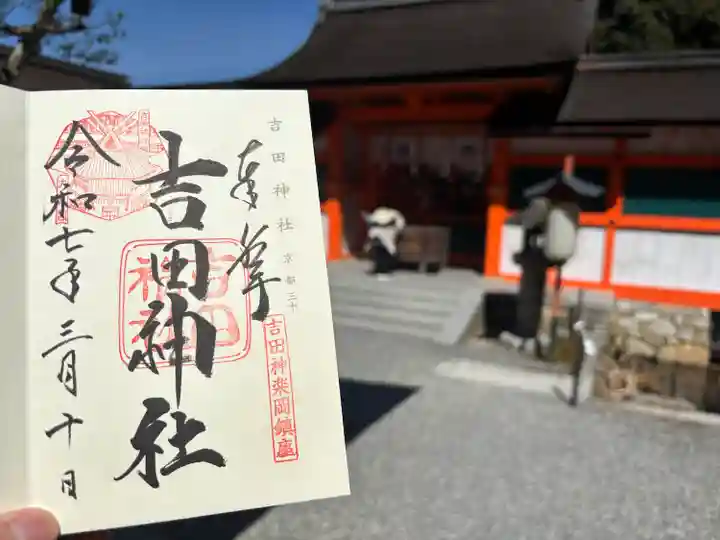 吉田神社 京都三十
奉拝
吉田神楽岡鎮座
吉田神社
吉田神社
令和七年三月十日